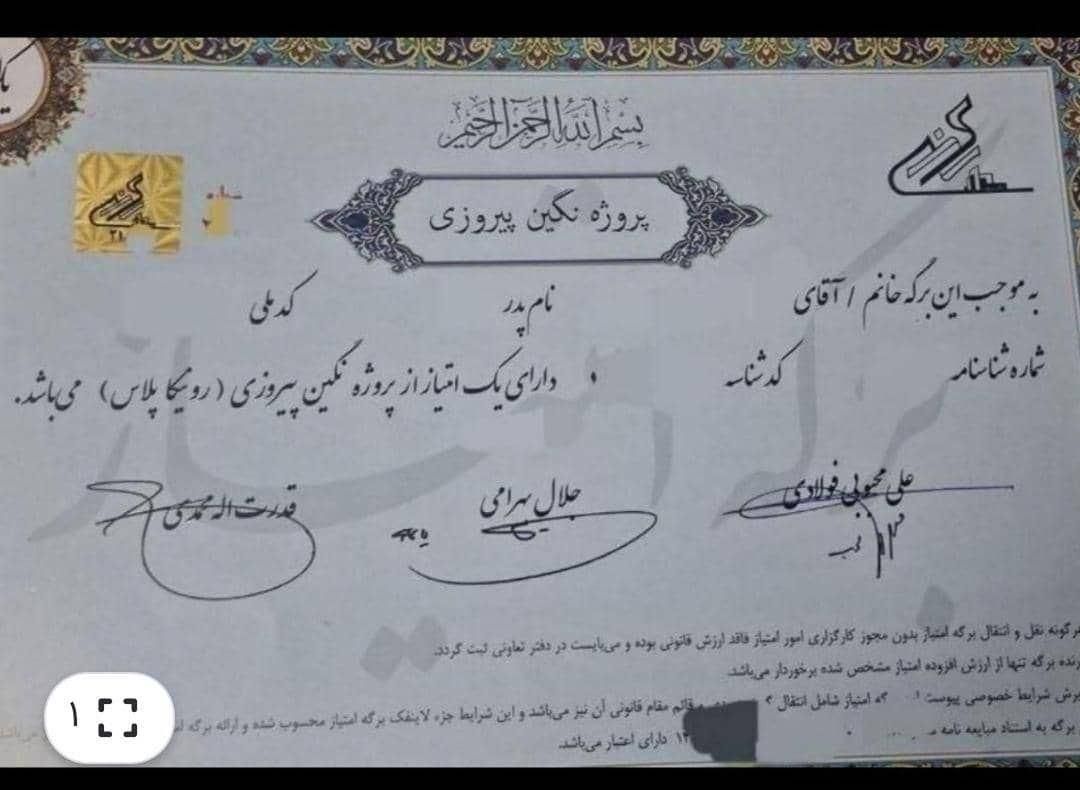 بسم الله الرحمن الرحیم
پروژه نگین پیروزی
۲۱
به موجب این برگه خانم / آقای نام پدر کد ملی
شماره شناسنامه کد شناسه دارای یک امتیاز از پروژه نگین پیروزی (رومیکا پلاس) می‌باشد.
برگه امتیاز
علی محبوبی فولادی جلال بهرامی قدرت اله محمدی
هرگونه نقل و انتقال برگه امتیاز بدون مجوز کارگزاری امور امتیاز فاقد ارزش قانونی بوده و می‌بایست در دفتر تعاونی ثبت گردد.
برگه تنها از ارزش افزوده امتیاز مشخص شده برخوردار می‌باشد.
شرایط خصوصی پیوست امتیاز شامل انتقال قائم مقام قانونی آن نیز می‌باشد و این شرایط جزء لاینفک برگه امتیاز محسوب شده و ارائه برگه
برگه به استناد مبایعه نامه دارای اعتبار می‌باشد.
۱